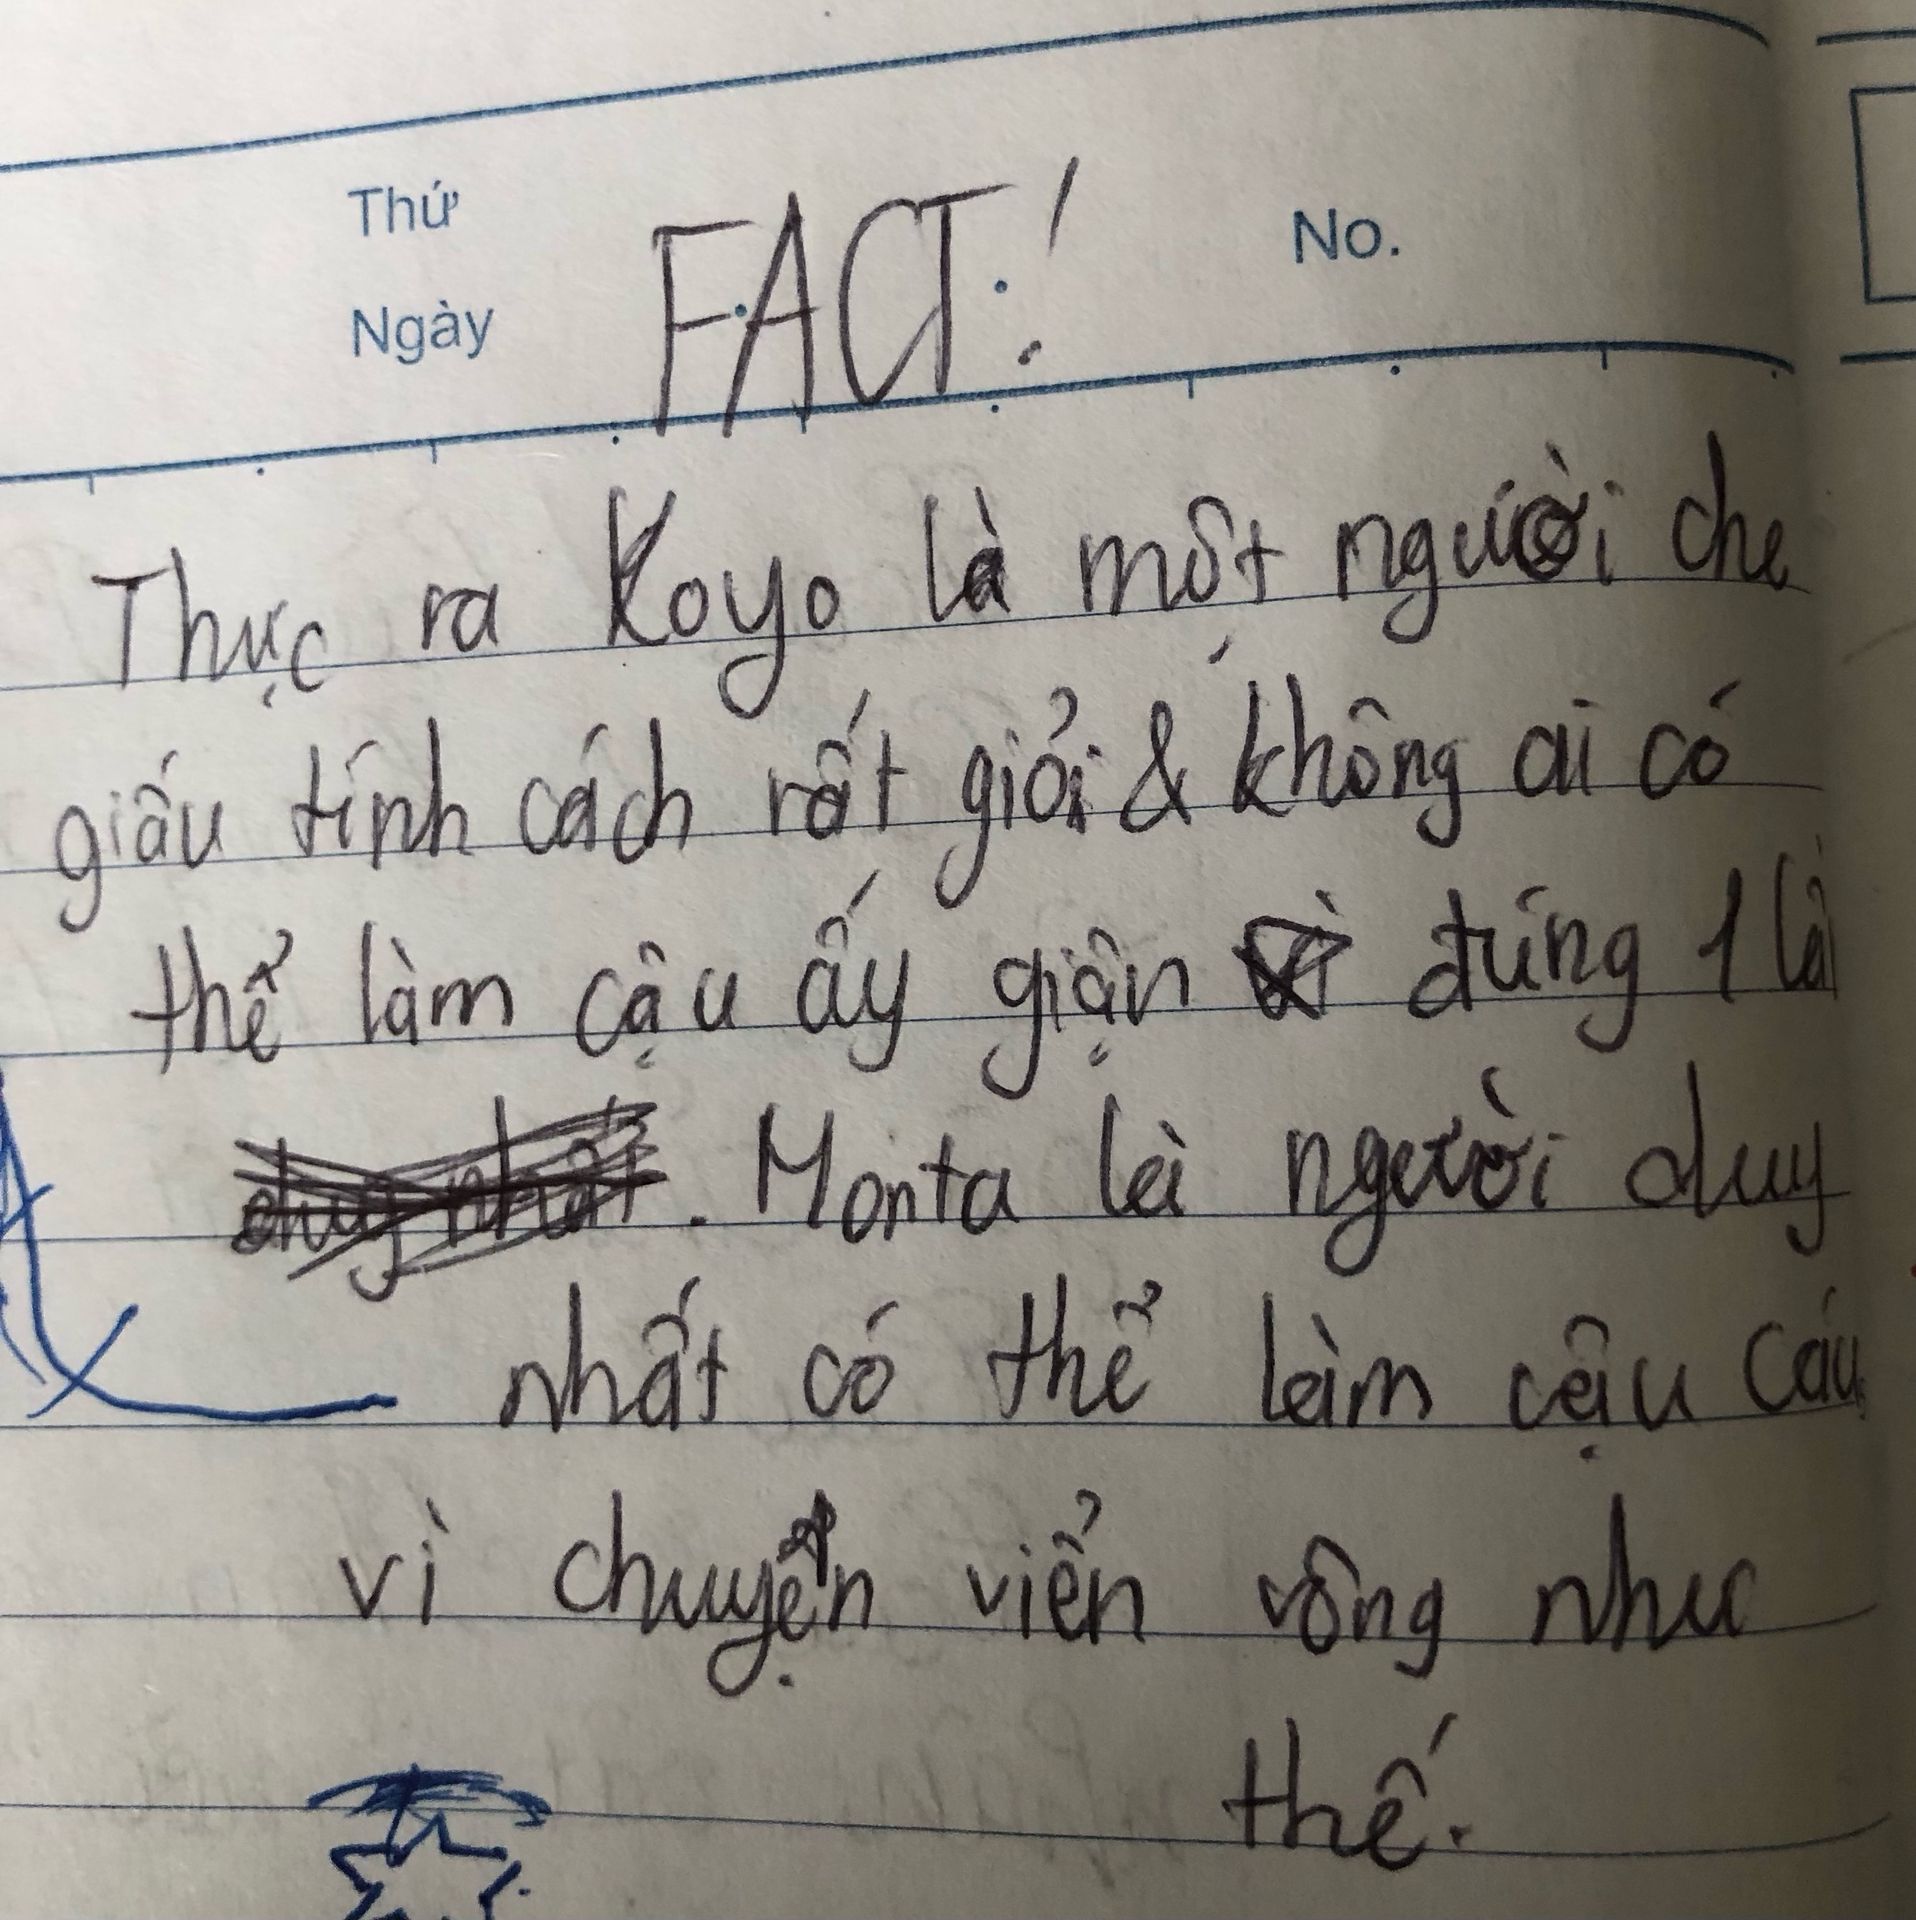 Thứ
FACT!
No.
Ngày
Thực ra Koyo là một người che
giấu tính cách rất giỏi & không ai có
thể làm cậu ấy giận đúng 1
. Monta là người duy
nhất có thể làm cậu cáu
vì chuyện viển vông như
thế.